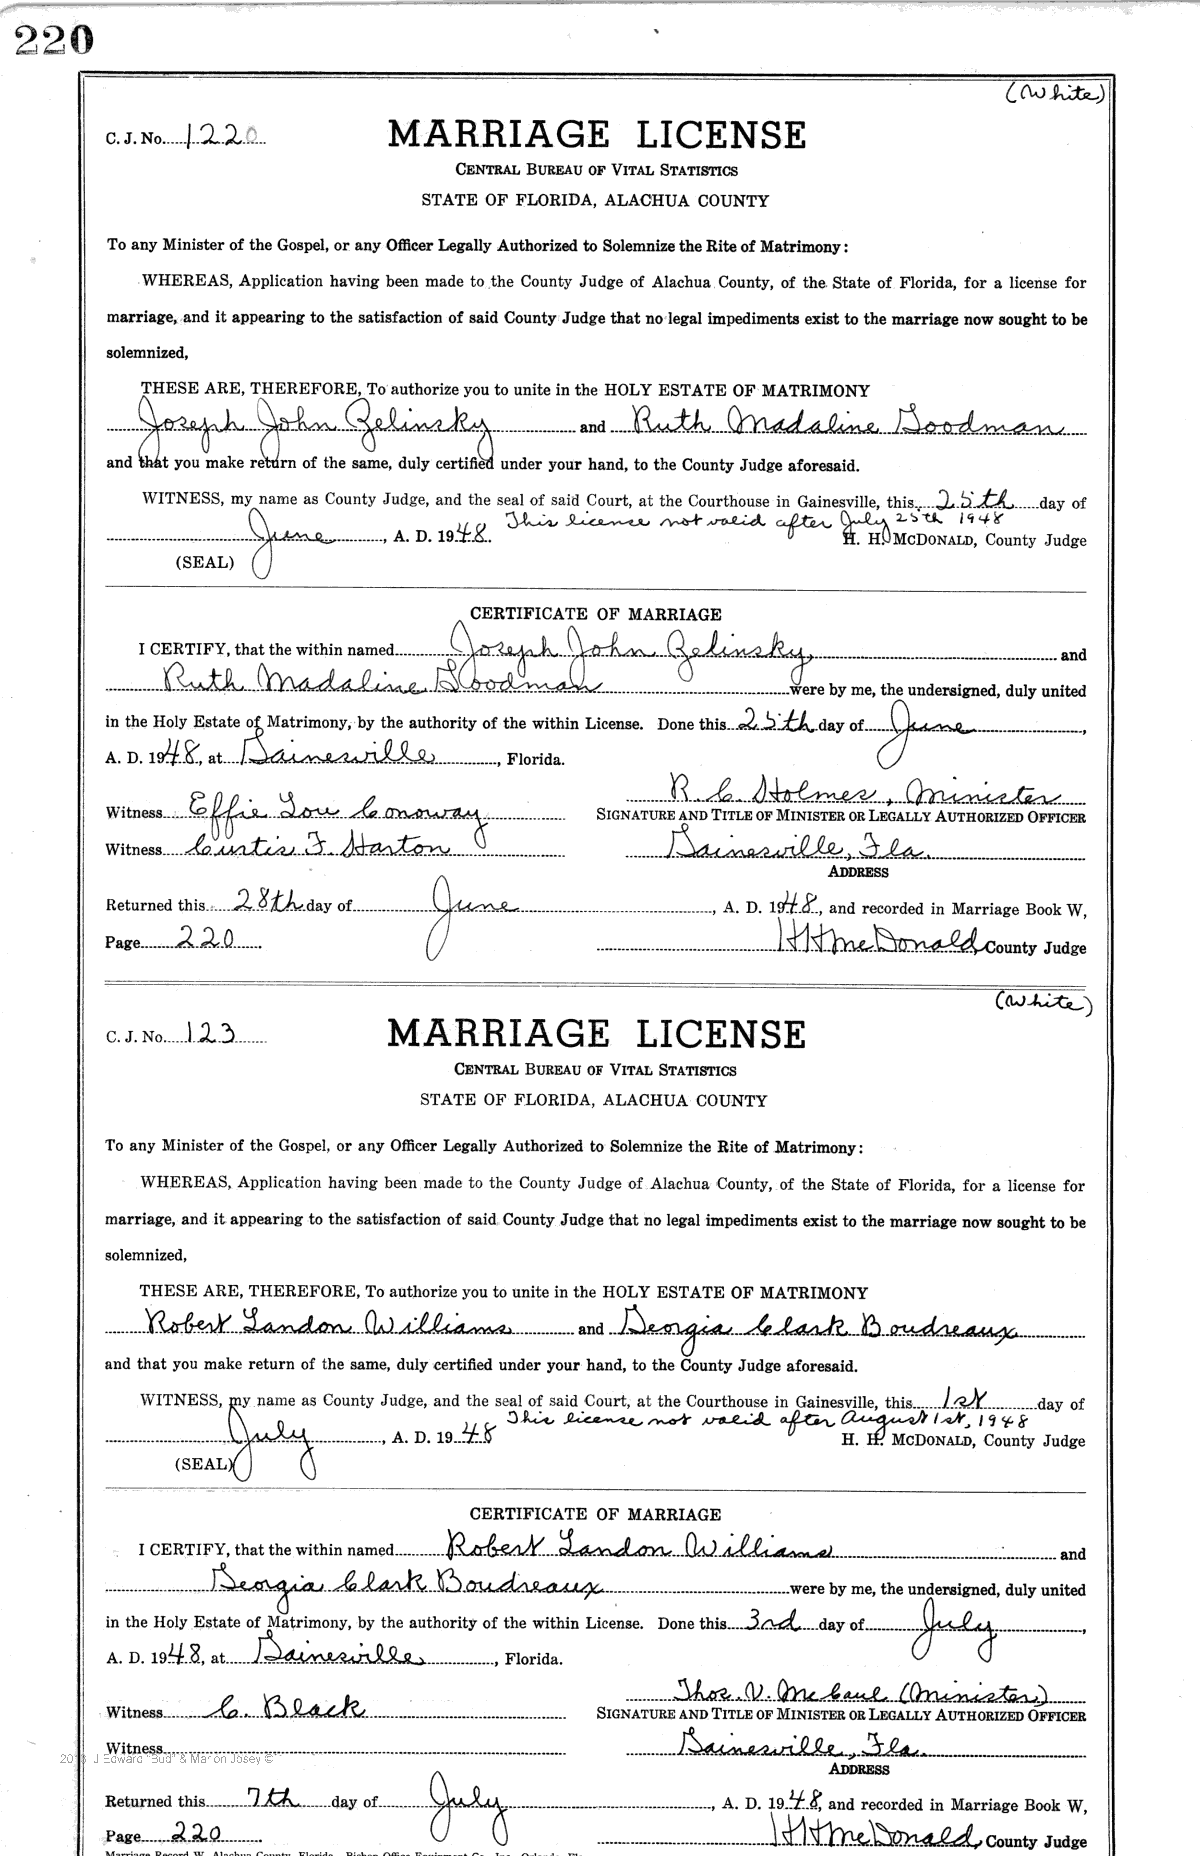 220
(White)
C. J. No. 1220 MARRIAGE LICENSE
CENTRAL BUREAU OF VITAL STATISTICS
STATE OF FLORIDA, ALACHUA COUNTY
To any Minister of the Gospel, or any Officer Legally Authorized to Solemnize the Rite of Matrimony:
WHEREAS, Application having been made to the County Judge of Alachua County, of the State of Florida, for a license for
marriage, and it appearing to the satisfaction of said County Judge that no legal impediments exist to the marriage now sought to be
solemnized,
THESE ARE, THEREFORE, To authorize you to unite in the HOLY ESTATE OF MATRIMONY
Joseph John Zelinsky and Ruth Madaline Goodman
and that you make return of the same, duly certified under your hand, to the County Judge aforesaid.
WITNESS, my name as County Judge, and the seal of said Court, at the Courthouse in Gainesville, this 25th day of
This license not valid after July 25th 1948
June, A. D. 1948. H. H. McDONALD, County Judge
(SEAL)
CERTIFICATE OF MARRIAGE
I CERTIFY, that the within named Joseph John Zelinsky, and
Ruth Madaline Goodman were by me, the undersigned, duly united
in the Holy Estate of Matrimony, by the authority of the within License. Done this 25th day of June,
A. D. 1948, at Gainesville, Florida.
R. C. Holmes, Minister
Witness Effie Lou Conoway SIGNATURE AND TITLE OF MINISTER OR LEGALLY AUTHORIZED OFFICER
Witness Curtis F. Harton Gainesville, Fla.
ADDRESS
Returned this 28th day of June, A. D. 1948, and recorded in Marriage Book W,
Page 220 HHMcDonald, County Judge
(White)
C. J. No. 123 MARRIAGE LICENSE
CENTRAL BUREAU OF VITAL STATISTICS
STATE OF FLORIDA, ALACHUA COUNTY
To any Minister of the Gospel, or any Officer Legally Authorized to Solemnize the Rite of Matrimony:
WHEREAS, Application having been made to the County Judge of Alachua County, of the State of Florida, for a license for
marriage, and it appearing to the satisfaction of said County Judge that no legal impediments exist to the marriage now sought to be
solemnized,
THESE ARE, THEREFORE, To authorize you to unite in the HOLY ESTATE OF MATRIMONY
Robert Landon Williams and Georgia Clark Boudreaux
and that you make return of the same, duly certified under your hand, to the County Judge aforesaid.
WITNESS, my name as County Judge, and the seal of said Court, at the Courthouse in Gainesville, this 1st day of
This license not valid after August 1st, 1948
July, A. D. 1948 H. H. McDONALD, County Judge
(SEAL)
CERTIFICATE OF MARRIAGE
I CERTIFY, that the within named Robert Landon Williams and
Georgia Clark Boudreaux were by me, the undersigned, duly united
in the Holy Estate of Matrimony, by the authority of the within License. Done this 3rd day of July,
A. D. 1948, at Gainesville, Florida.
Thos. V. McCaul (Minister)
Witness C. Black SIGNATURE AND TITLE OF MINISTER OR LEGALLY AUTHORIZED OFFICER
Witness Gainesville, Fla.
J Edward "Bud" & Marion Josey ©
ADDRESS
Returned this 7th day of July, A. D. 1948, and recorded in Marriage Book W,
Page 220 HHMcDonald, County Judge
Marriage Record W, Alachua County, Florida